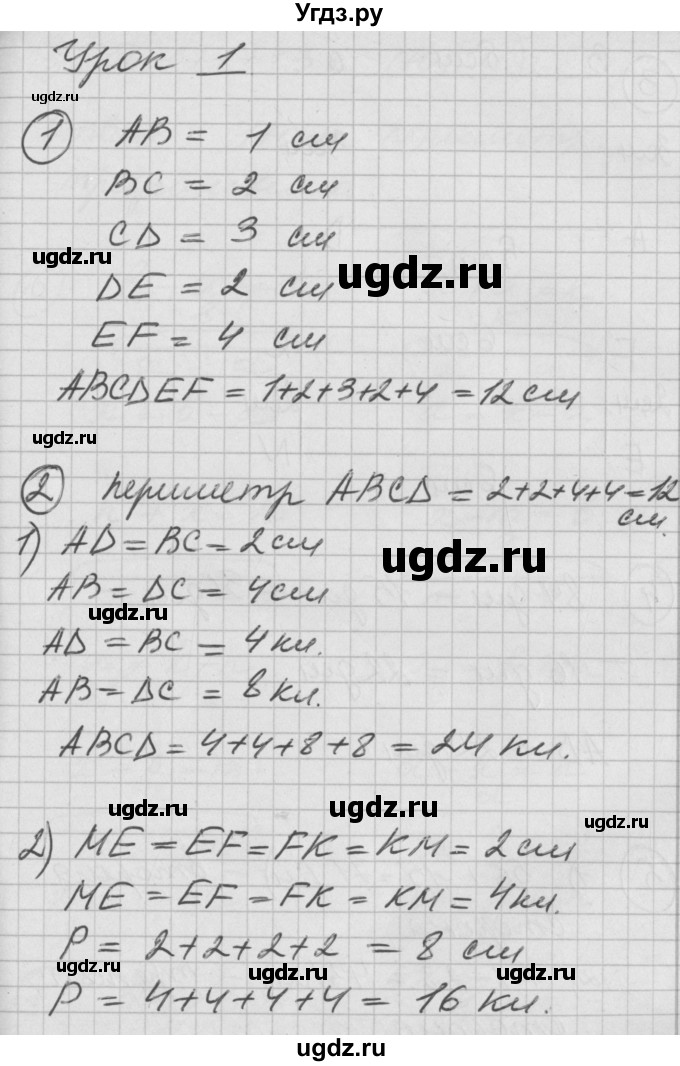 Угдз.ру
Урок 1
ugdz.ru
1 AB = 1 см
BC = 2 см
CD = 3 см
ugdz.ru
ugdz.ru
DE = 2 см
EF = 4 см
ABCDEF = 1+2+3+2+4 = 12 см
ugdz.ru
2 периметр ABCD = 2+2+4+4=12
см.
1) AD = BC = 2 см
ugdz.ru
AB = DC = 4 см
ugdz.ru
AD = BC = 4 кл.
AB = DC = 8 кл.
ugdz.ru
ABCD = 4+4+8+8 = 24 кл.
ugdz.ru
ugdz.ru
ugdz.ru
2) ME = EF = FK = KM = 2 см
ME = EF = FK = KM = 4 кл.
P = 2+2+2+2 = 8 см
ugdz.ru
ugdz.ru
ugdz.ru
P = 4+4+4+4 = 16 кл.
ugdz.ru